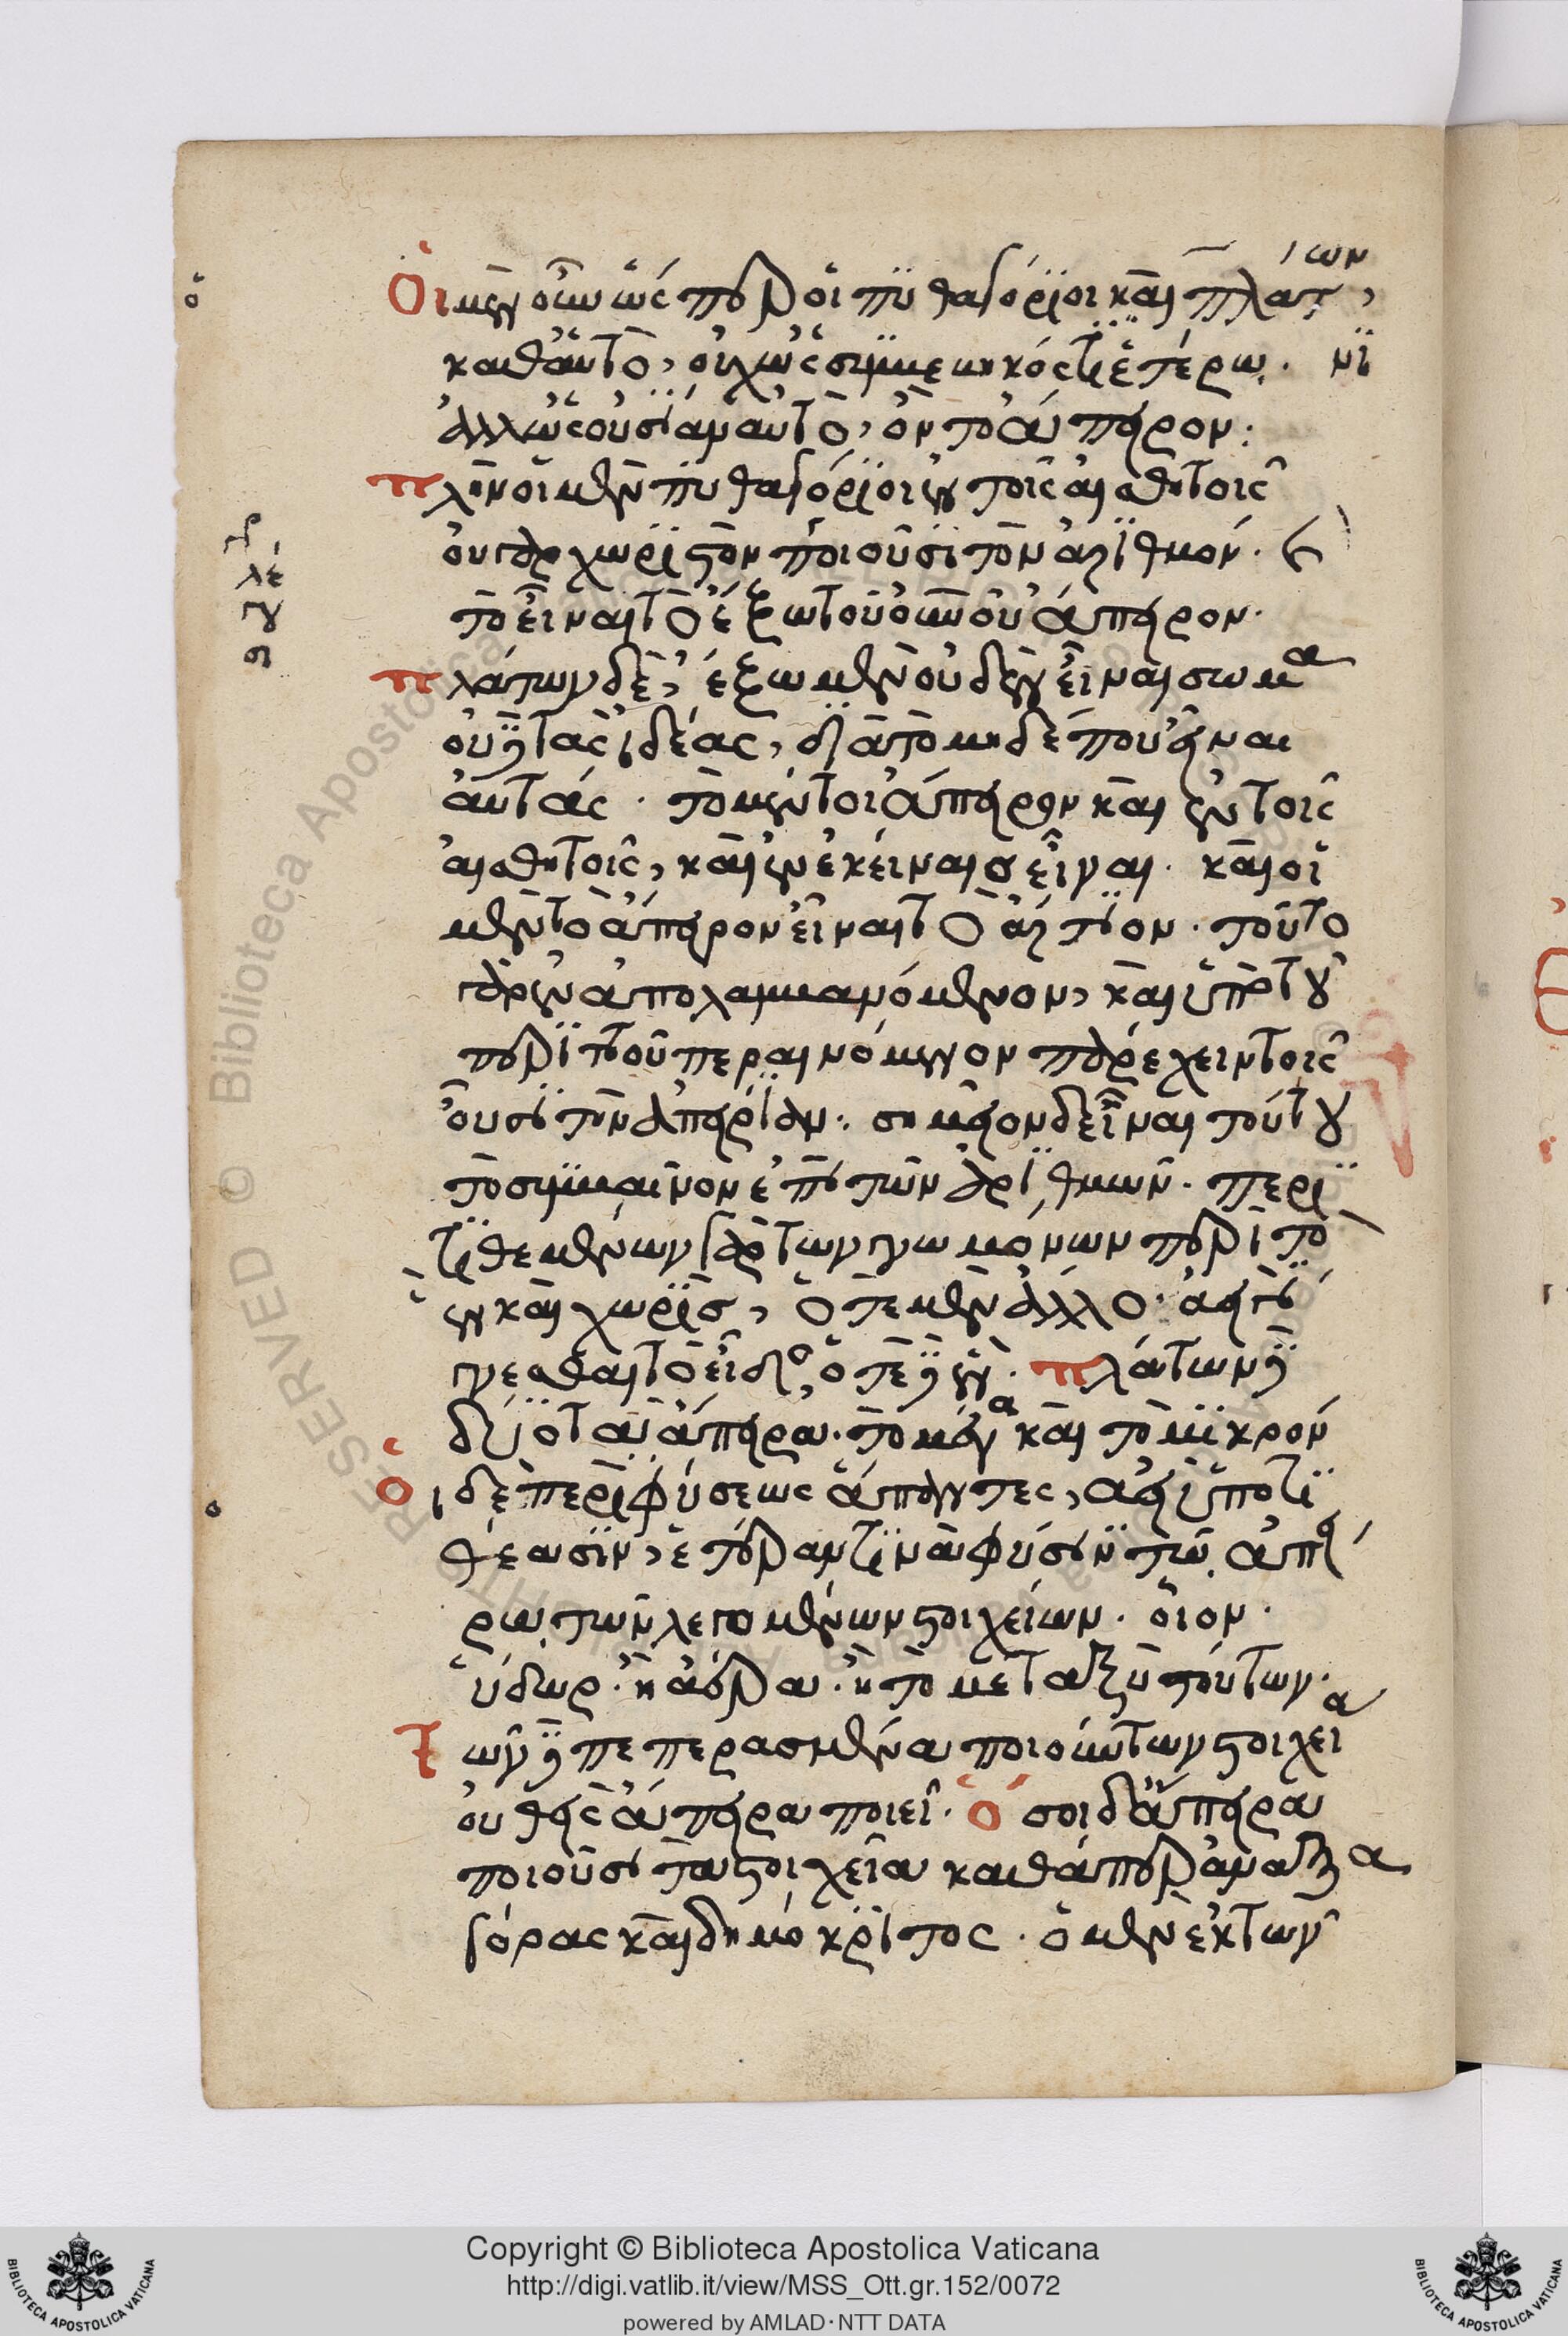 Οἱ μὲν οὖν ὥσπερ οἱ πυθαγόριοι καὶ πλάτων,
καθ' αὑτὸ, οὐχ ὡς συμβεβηκός τι ἑτέρῳ.
ἀλλ' ὡς οὐσίαν αὐτὸ, ὂν τὸ ἄπειρον:
πλὴν οἱ μὲν πυθαγόριοι ἐν τοῖς αἰσθητοῖς
οὐ γὰρ χωριστὸν ποιοῦσι τὸν ἀριθμόν. καὶ
τὸ εἶναι τὸ ἔξω τοῦ οὐνοῦ ἄπειρον.
πλάτων δὲ, ἔξω μὲν οὐδὲν εἶναι σῶμα
οὐδὲ τὰς ἰδέας, διὰ τὸ μηδέ που εἶναι
αὐτάς. τὸ μέντοι ἄπειρον καὶ ἐν τοῖς
αἰσθητοῖς, καὶ ἐν ἐκείναις εἶναι. καὶ οἱ
μὲν τὸ ἄπειρον εἶναι τὸ ἄρτιον. τοῦτο
γὰρ ἐναπολαμβανόμενον, καὶ ὑπὸ τοῦ
περιττοῦ περαινόμενον παρέχειν τοῖς
οὖσι τὴν ἀπειρίαν: σημεῖον δ' εἶναι τούτου
τὸ συμβαῖνον ἐπὶ τῶν ἀριθμῶν. περι
τιθεμένων γὰρ τῶν γνωμόνων περὶ τὸ
ἓν καὶ χωρὶς, ὁτὲ μὲν ἄλλο ἀεί τι
γνεσθαι τὸ εἶδος, ὁτὲ δὲ ἕν. πλάτων δὲ
δύο τὰ ἄπειρα. τὸ μέγα καὶ τὸ μικρόν
οἱ δὲ περὶ φύσεως ἅπαντες, ἀεὶ ὑποτι
θέασιν, ἑτέραν τινὰ φύσιν τῷ ἀπεί
ρῳ τῶν λεγομένων στοιχείων. οἷον.
ὕδωρ. ἢ ἀέρα. ἢ τὸ μεταξὺ τούτων.
τῶν δὲ πεπερασμένα ποιούντων στοιχεῖα
οὐθεὶς ἄπειρα ποιεῖ. ὅσοι δ' ἄπειρα
ποιοῦσι τὰ στοιχεῖα καθάπερ ἀναξα
γόρας καὶ δημόκριτος. ὁ μὲν ἐκ τῶν